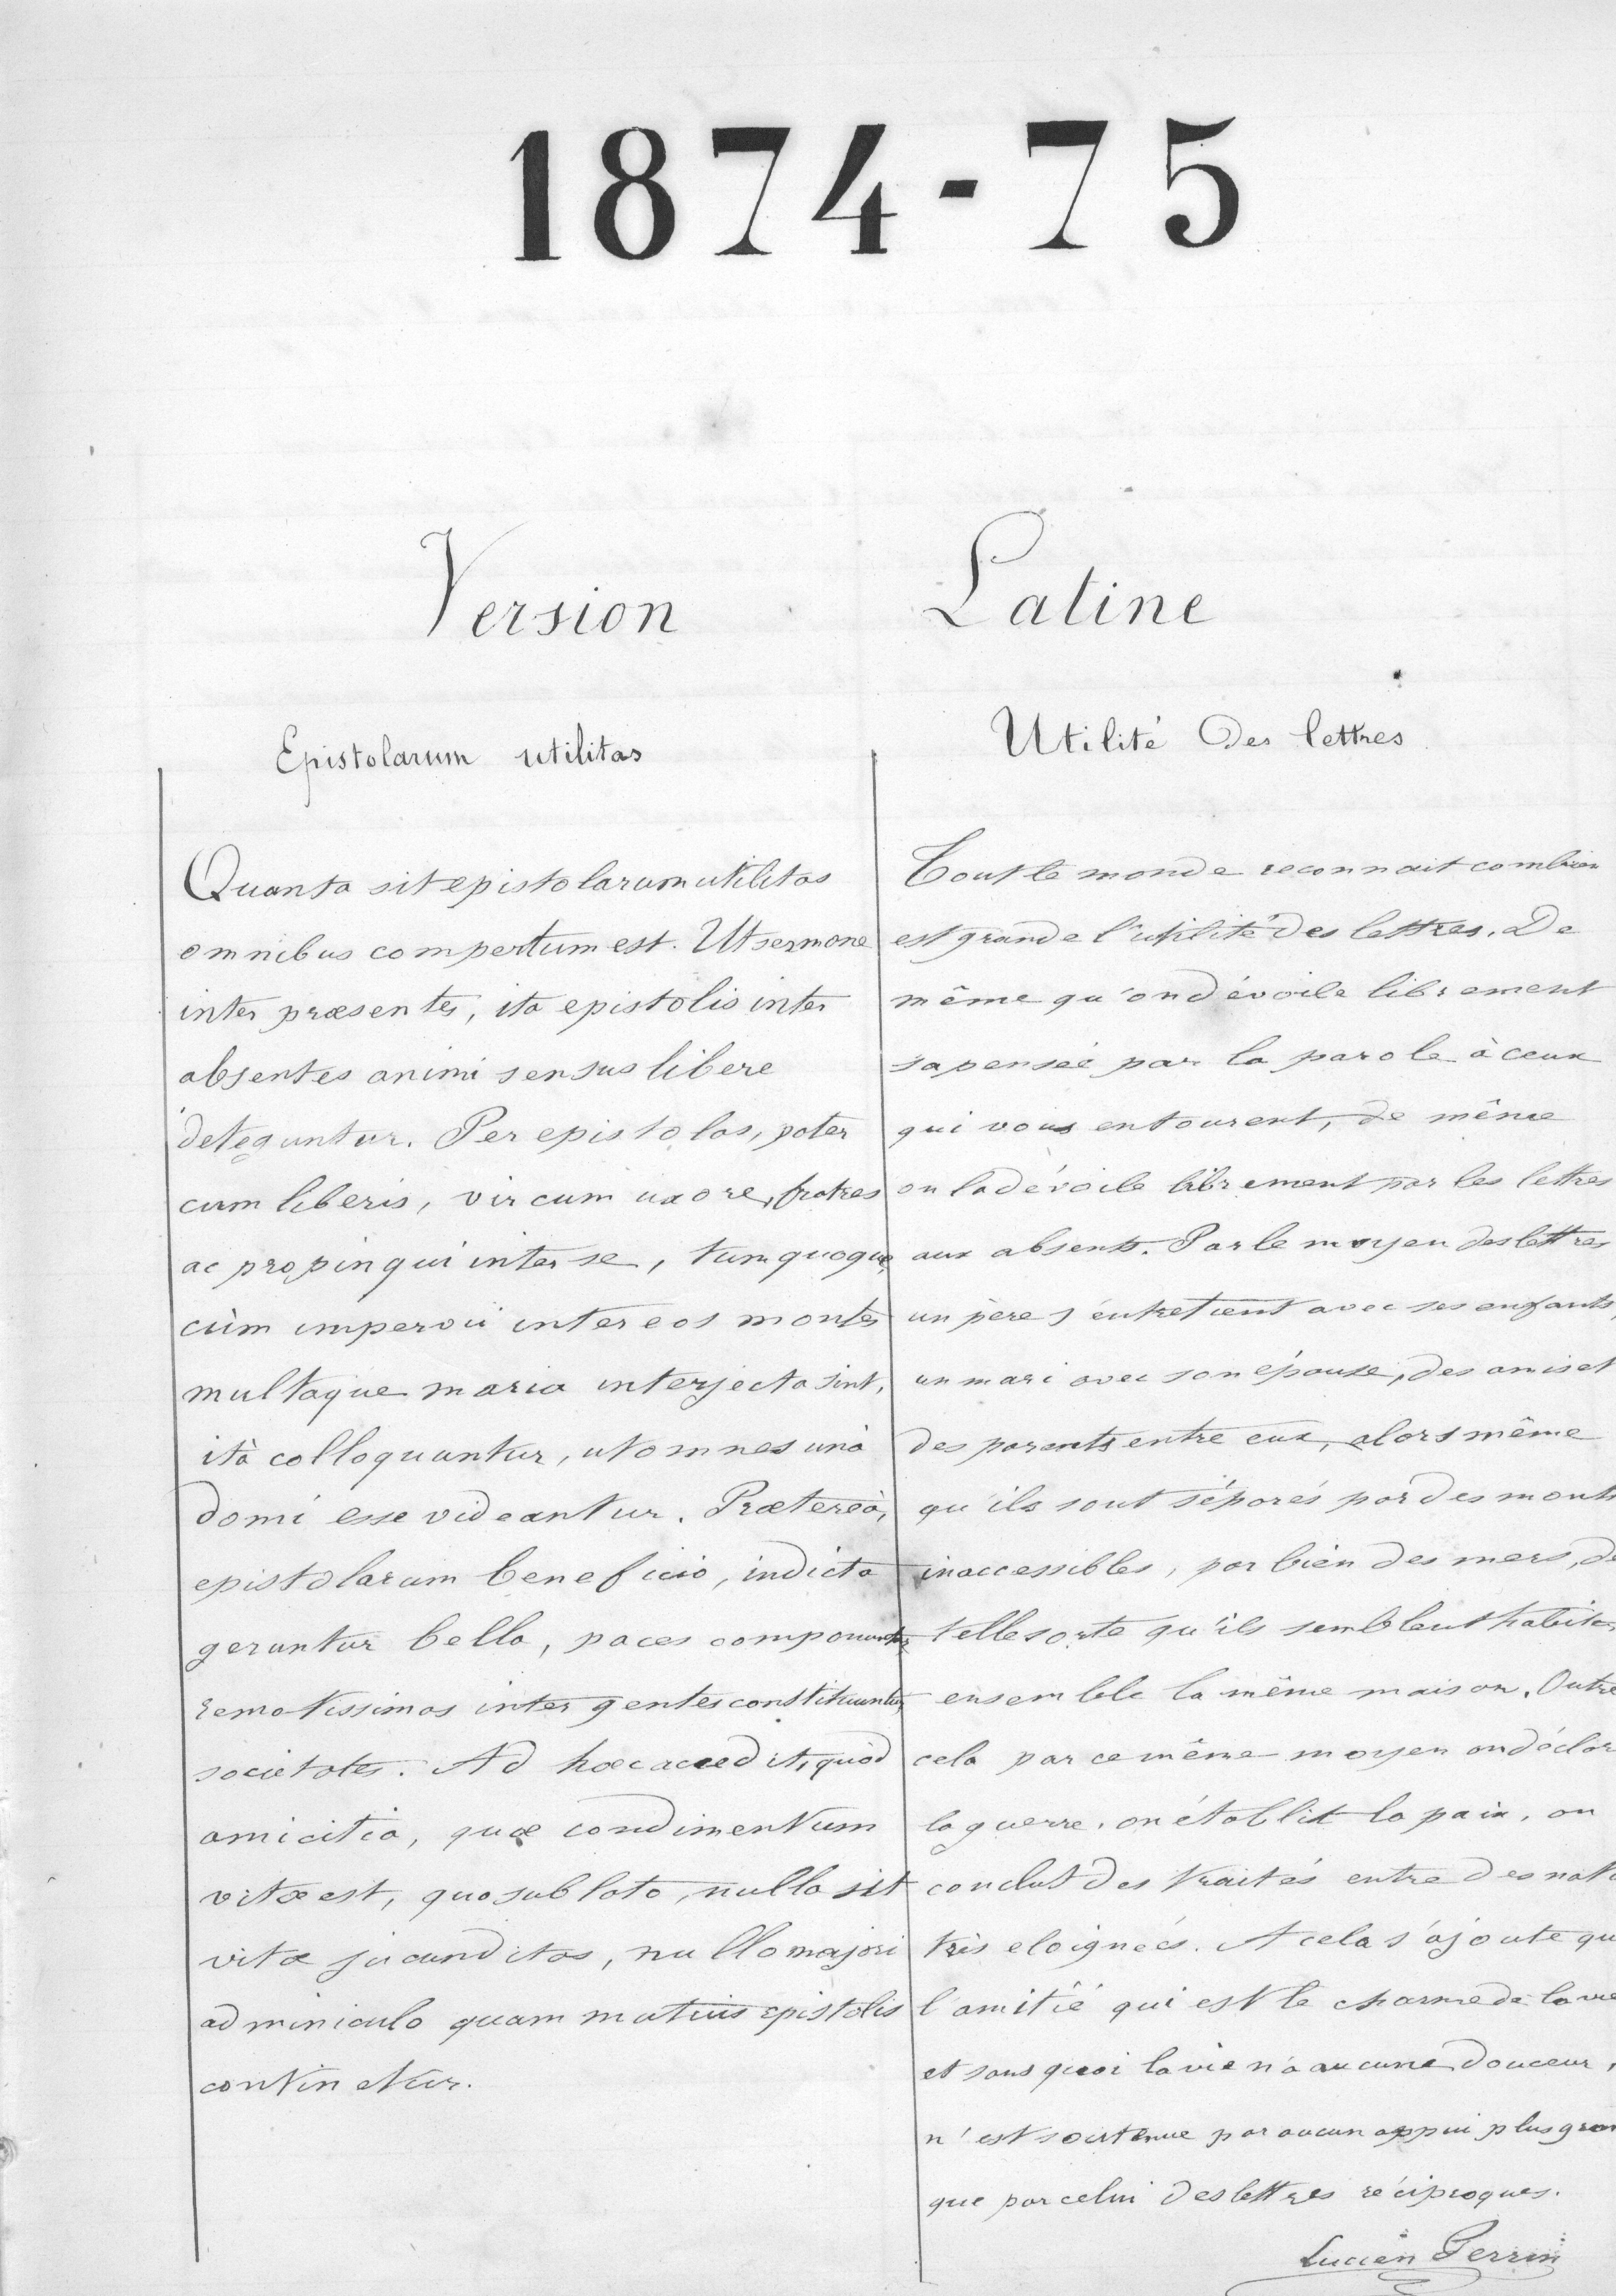 1874-75
Version Latine
Epistolarum utilitas
Quanta sit epistolarum utilitas
omnibus compertum est. Ut sermone
inter præsentes, ita epistolis inter
absentes animi sensus libere
deteguntur. Per epistolas, pater
cum liberis, vir cum uxore, fratres
ac propinqui inter se, tum quoque
cùm impervii inter eos montes
multaque maria interjecta sint,
ità colloquantur, ut omnes unà
domi esse videantur. Prætereà,
epistolarum beneficio, indicta
geruntur bella, paces componuntur
remotissimas inter gentes constituuntur
societates. Ad hæc accedit, quòd
amicitia, quæ condimentum
vitæ est, quo sublato, nulla sit
vitæ jucunditas, nullo majori
adminiculo quam mutuis epistolis
continetur.
Utilité des lettres
Tout le monde reconnait combien
est grande l'utilité des lettres. De
même qu'on dévoile librement
sa pensée par la parole à ceux
qui vous entourent, de même
on la dévoile librement par les lettres
aux absents. Par le moyen des lettres
un père s'entretient avec ses enfants,
un mari avec son épouse, des amis et
des parents entre eux, alors même
qu'ils sont séparés par des monts
inaccessibles, par bien des mers, de
telle sorte qu'ils semblent habiter
ensemble la même maison. Outre
cela par ce même moyen on déclar
la guerre, on établit la paix, on
conclut des traités entre des nat
très eloignées. A cela s'ajoute qu
l'amitié qui est le charme de la vie
et sans quoi la vie n'a aucune douceur,
n'est soutenue par aucun appui plus gran
que par celui des lettres réciproques.
Lucien Perrin